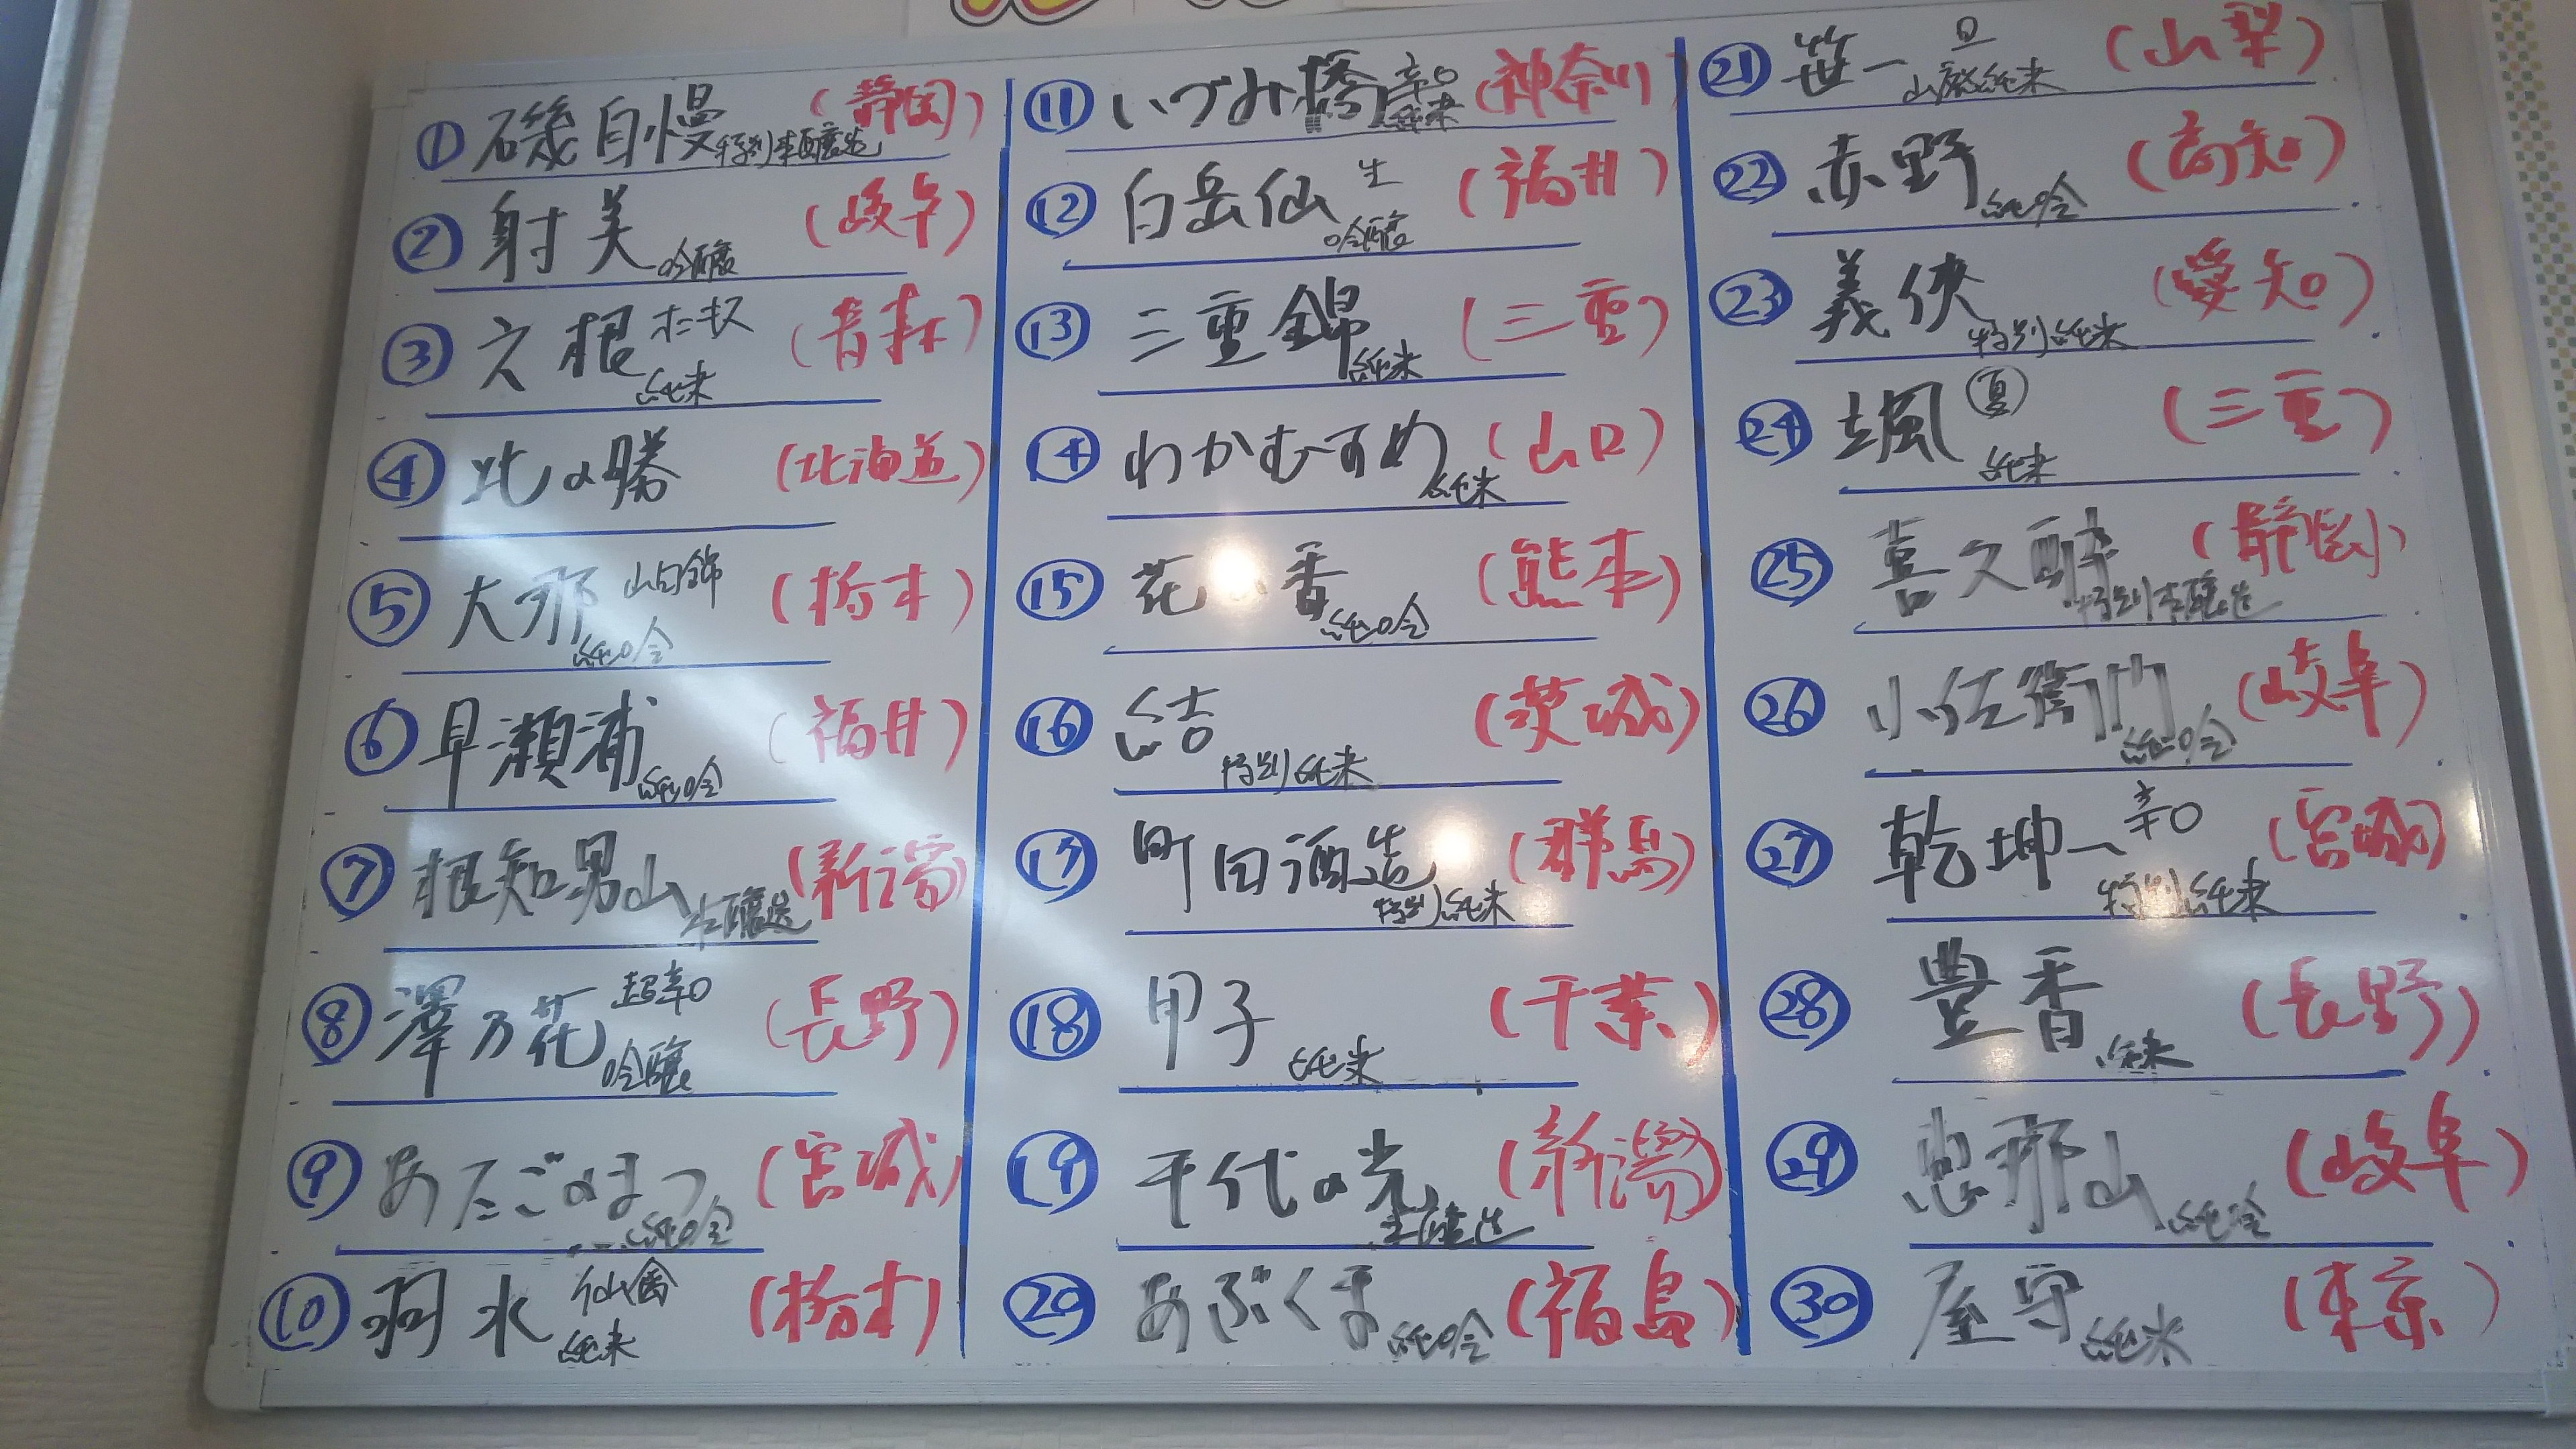 ① 磯自慢 特別本醸造 (静岡)
② 射美 吟醸 (岐阜)
③ 六根 オニキス 純米 (青森)
④ 北の勝 (北海道)
⑤ 大那 山田錦 純吟 (栃木)
⑥ 早瀬浦 純吟 (福井)
⑦ 根知男山 本醸造 (新潟)
⑧ 澤乃花 超辛口 吟醸 (長野)
⑨ あたごのまつ 純吟 (宮城)
⑩ 羽水 仙禽 純米 (栃木)
⑪ いづみ橋 辛口 純米 (神奈川)
⑫ 白岳仙 生 吟醸 (福井)
⑬ 三重錦 純米 (三重)
⑭ わかむすめ 純米 (山口)
⑮ 花の香 純吟 (熊本)
⑯ 結 特別純米 (茨城)
⑰ 町田酒造 特別純米 (群馬)
⑱ 甲子 純米 (千葉)
⑲ 千代の光 本醸造 (新潟)
⑳ あぶくま 純吟 (福島)
㉑ 笹一 旦 山廃純米 (山梨)
㉒ 赤野 純吟 (高知)
㉓ 義侠 特別純米 (愛知)
㉔ 颯 夏 純米 (三重)
㉕ 喜久酔 特別本醸造 (静岡)
㉖ 小左衛門 純吟 (岐阜)
㉗ 乾坤一 辛口 特別純米 (宮城)
㉘ 豊香 純米 (長野)
㉙ 恵那山 純吟 (岐阜)
㉚ 屋守 純米 (東京)